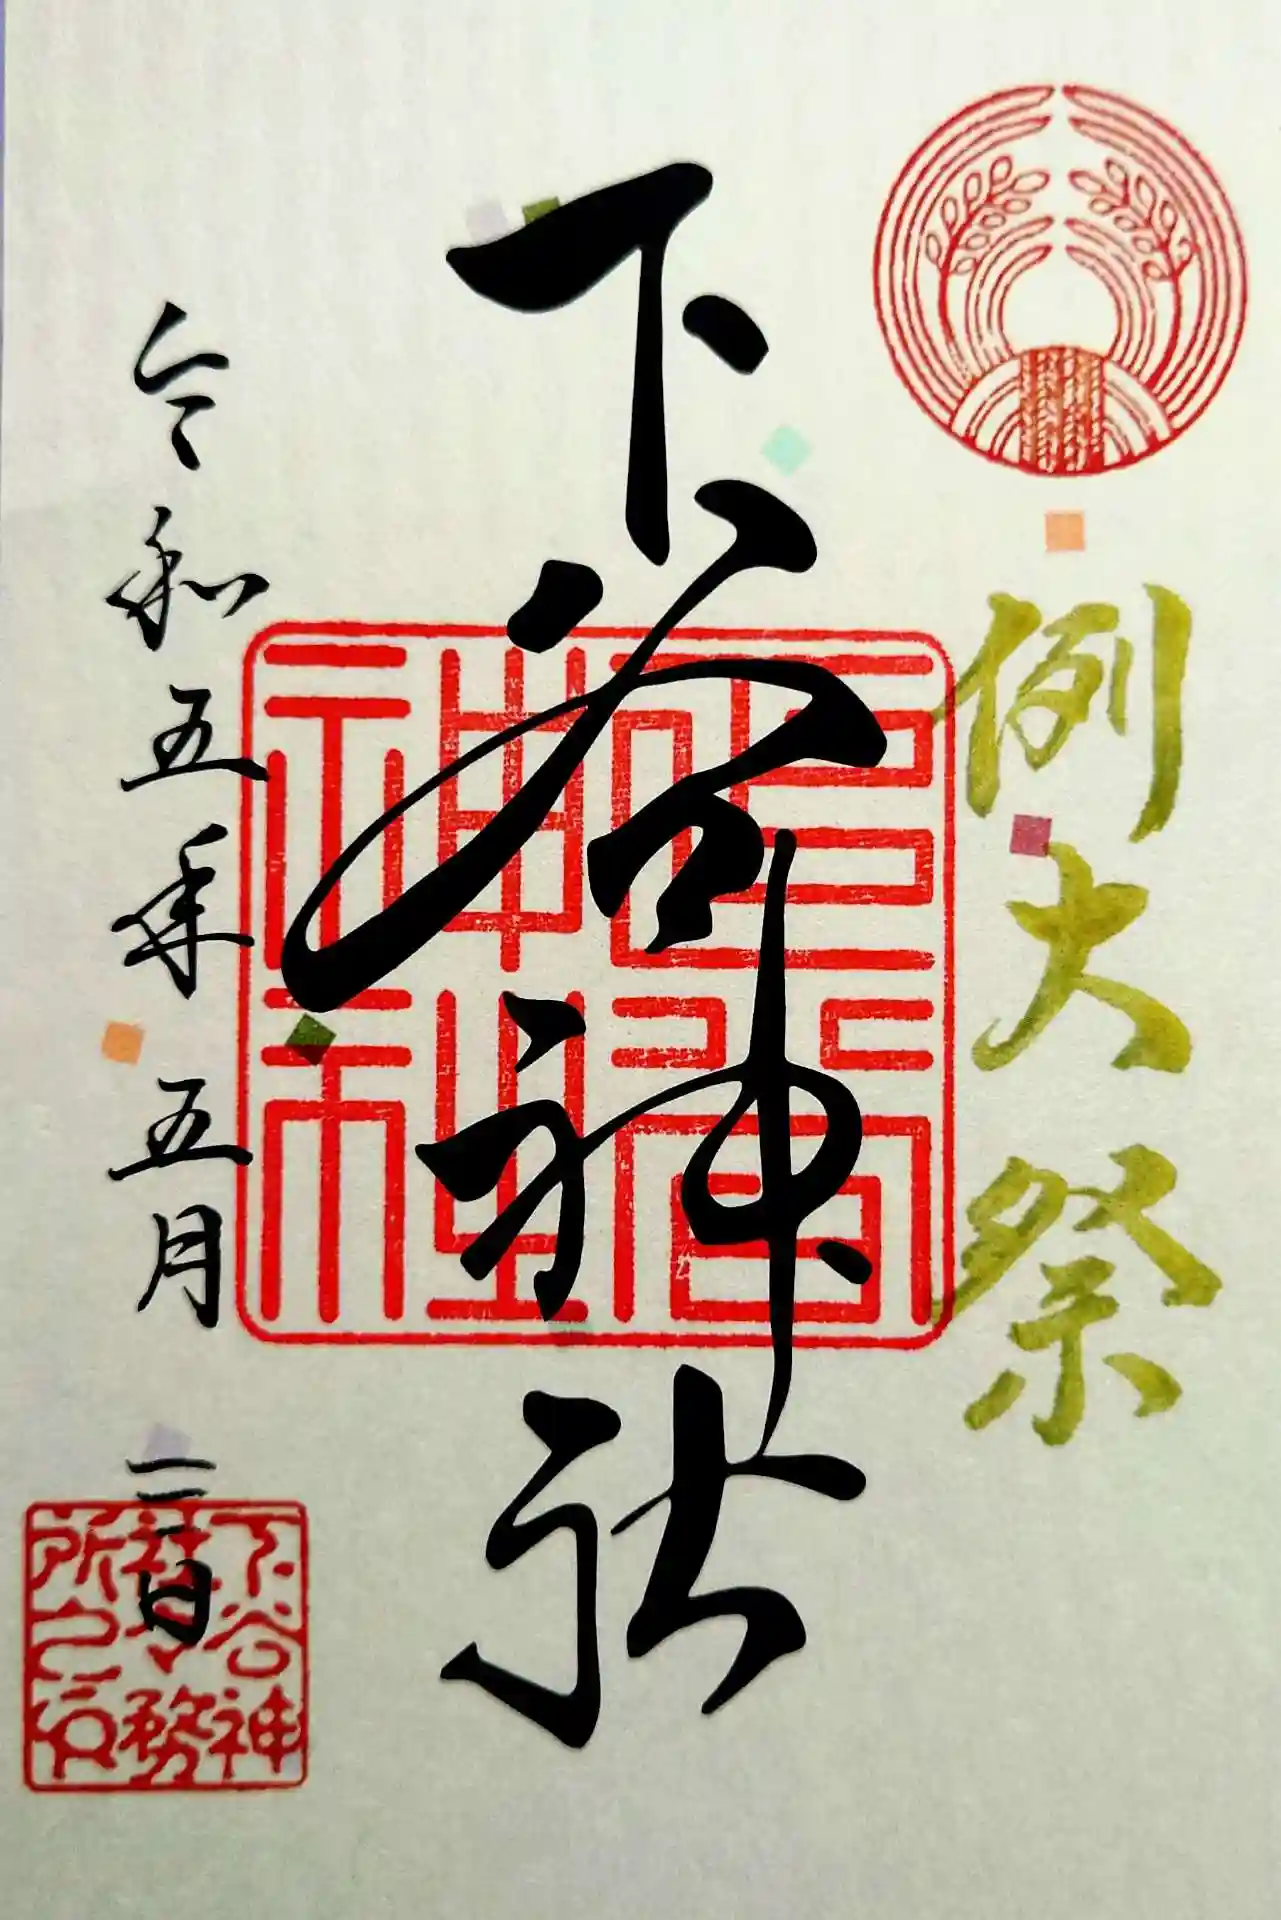 例大祭
下谷神社
令和五年五月三日
下谷神
社務
所之印